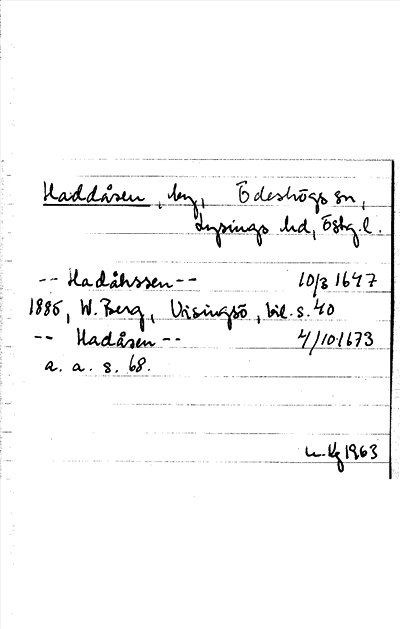 Haddåsen, by, Ödeshögs sn,
Lysings hd, Östg.l.
-- Hadåhssen -- 10/3 1647
1885, W. Berg, Visingsö, bil. s. 40
-- Hadåsen -- 4/10 1673
a. a. s. 68.
1963